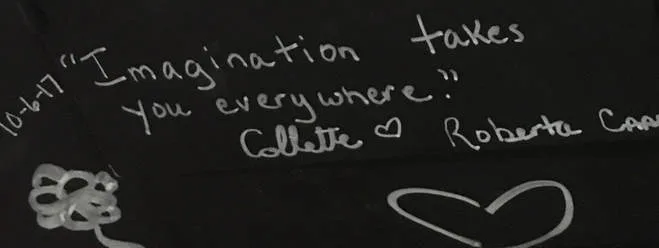 10-6-17
"Imagination takes
you everywhere."
Collette ♡ Roberta